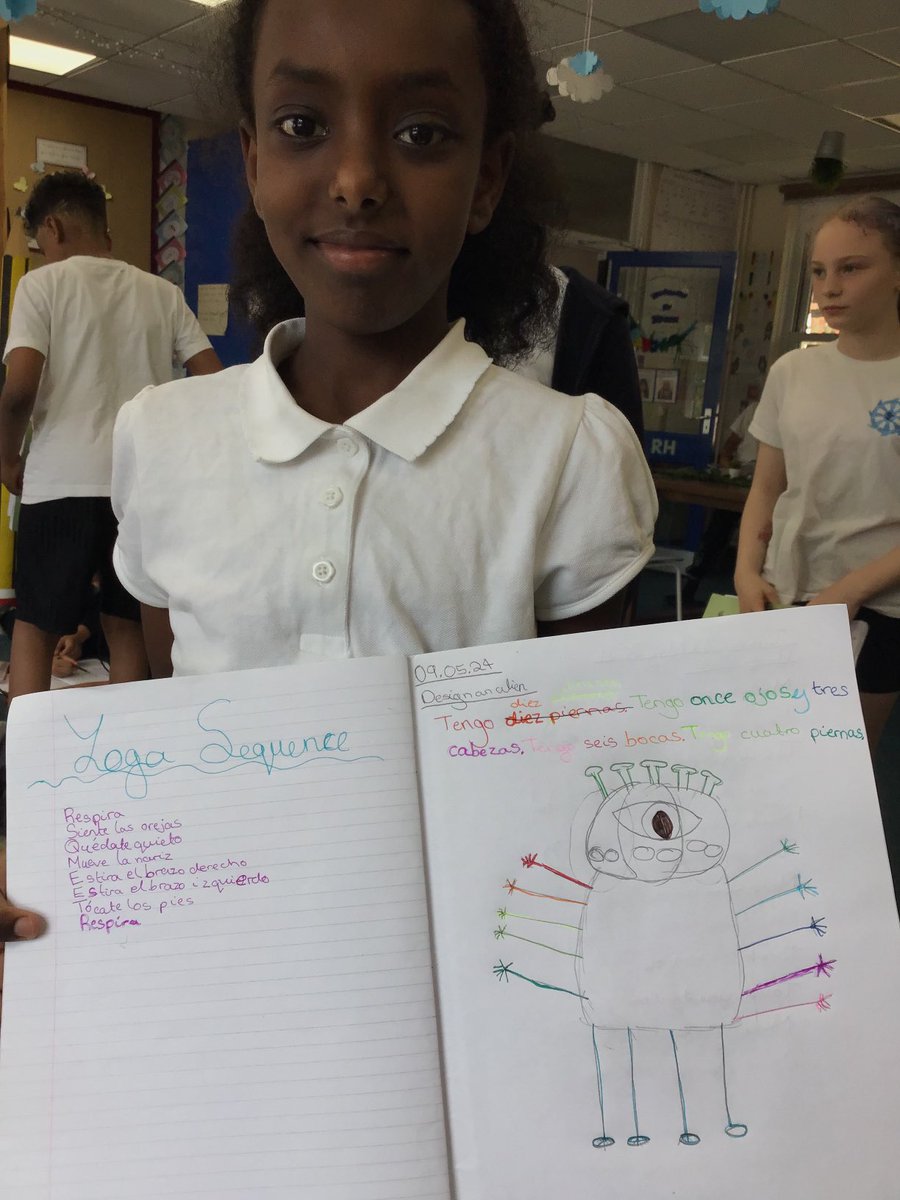 Yoga Sequence
Respira
Siente las orejas
Quédate quieto
Mueve la nariz
Estira el brazo derecho
Estira el brazo izquierdo
Tócate los pies
Respira
09.05.24
Design an alien
diez
Tengo diez piernas. Tengo once ojos y tres
cabezas. Tengo seis bocas. Tengo cuatro piernas.
RH